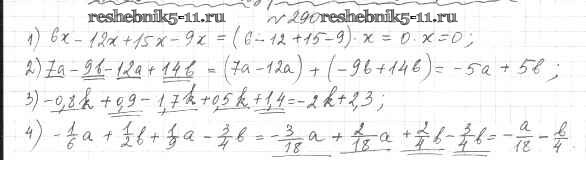 reshebnik5-11.ru №290 reshebnik5-11.ru
1) 6x - 12x + 15x - 9x = (6 - 12 + 15 - 9) · x = 0 · x = 0;
2) 7a - 9b - 12a + 14b = (7a - 12a) + (-9b + 14b) = -5a + 5b;
3) -0,8k + 0,9 - 1,7k + 0,5k + 1,4 = -2k + 2,3;
4) -1/6 a + 1/2 b + 1/9 a - 3/4 b = -3/18 a + 2/18 a + 2/4 b - 3/4 b = -a/18 - b/4.